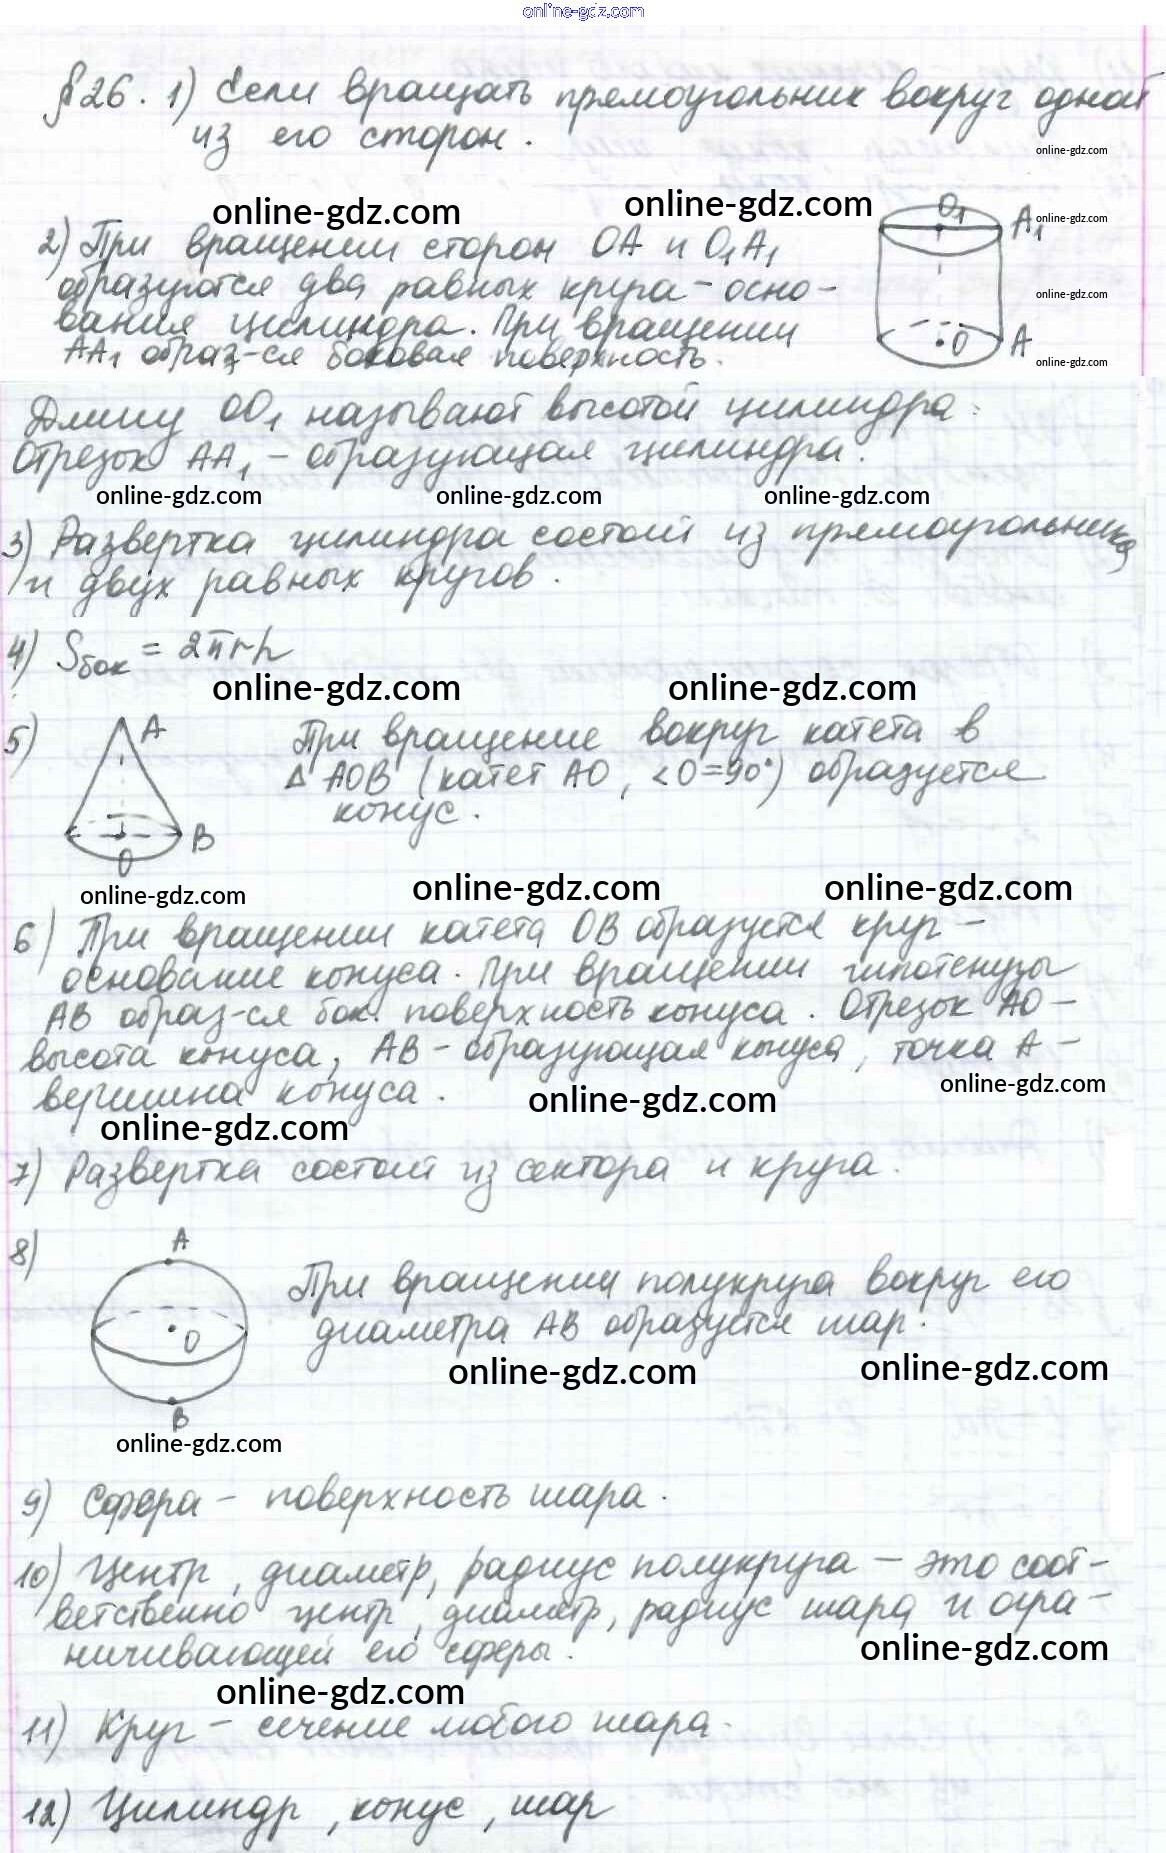 online-gdz.com
§ 26. 1) Если вращать прямоугольник вокруг одной
из его сторон.
online-gdz.com
online-gdz.com
online-gdz.com
O₁ A₁
online-gdz.com
2) При вращении сторон OA и O₁A₁
образуются два равных круга - осно-
online-gdz.com
вания цилиндра. При вращении
O A
AA₁ образ-ся боковая поверхность.
online-gdz.com
Длину OO₁ называют высотой цилиндра.
Отрезок AA₁ - образующая цилиндра.
online-gdz.com online-gdz.com online-gdz.com
3) Развертка цилиндра состоит из прямоугольника
и двух равных кругов.
4) Sбок = 2πrh
online-gdz.com online-gdz.com
5) A
При вращение вокруг катета в
Δ AOB (катет AO, <O=90°) образуется
конус.
B
O
online-gdz.com online-gdz.com online-gdz.com
6) При вращении катета OB образуется круг -
основание конуса. При вращении гипотенузы
AB образ-ся бок. поверхность конуса. Отрезок AO -
высота конуса, AB - образующая конуса, точка A -
вершина конуса.
online-gdz.com
online-gdz.com
online-gdz.com
7) Развертка состоит из сектора и круга.
8) A
При вращении полукруга вокруг его
диаметра AB образуется шар.
O
B
online-gdz.com online-gdz.com
online-gdz.com
9) Сфера - поверхность шара.
10) Центр, диаметр, радиус полукруга - это соот-
ветственно центр, диаметр, радиус шара и огра-
ничивающей его сферы.
online-gdz.com
online-gdz.com
11) Круг - сечение любого шара.
12) Цилиндр, конус, шар